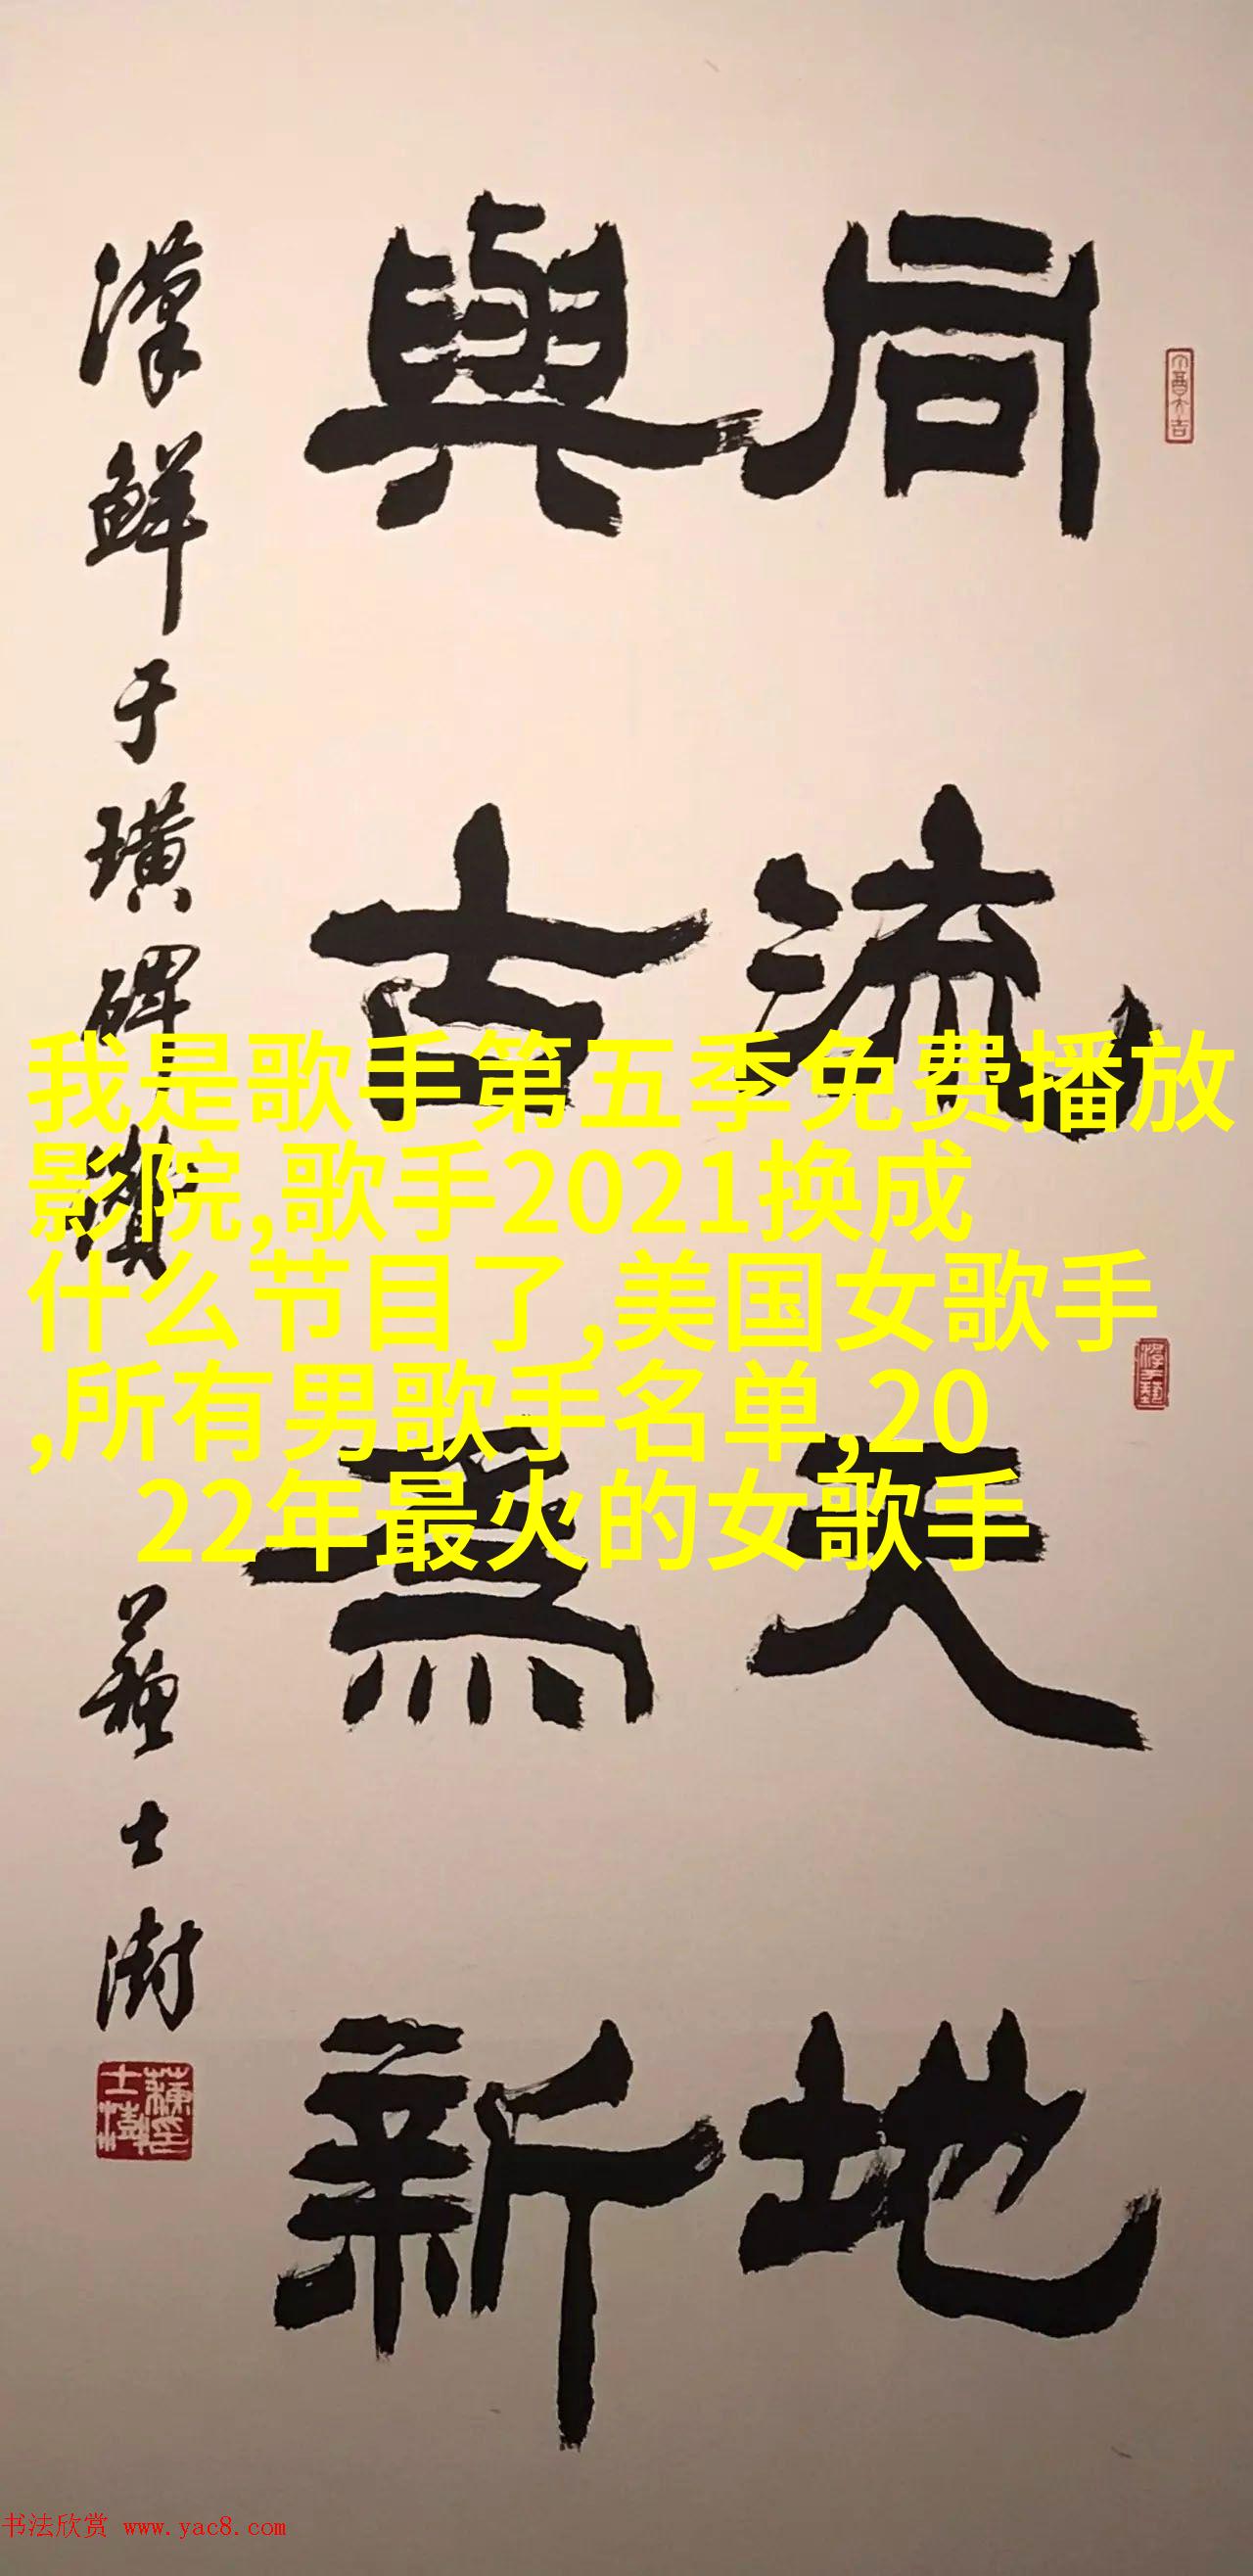 同流天地
與古為新
漢鮮于璜碑
蘇士澍
我是歌手第五季免费播放
影院,歌手2021换成
什么节目了,美国女歌手
,所有男歌手名单,20
22年最火的女歌手
书法欣赏 www.yac8.com